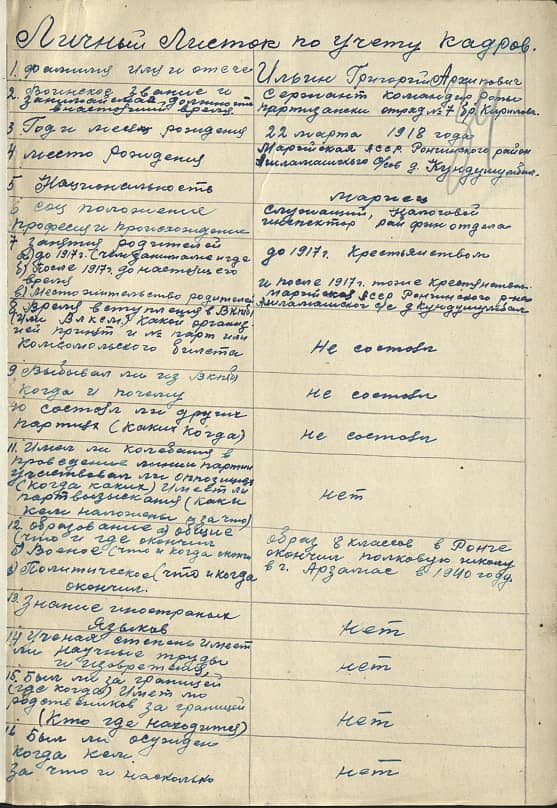 Личный Листок по учету кадров.
1. Фамилия имя и отече
Ильин Григорий Архипович
2. Воинское звание и
занимаемая должность
в настоящий время
Сержант командир роты
партизански отряд № 7 Кирилова
3 Год и месяц рождения
22 марта 1918 года
4 место рождения
Марийская АССР Ронгинский район
с/сов д. Кундушумбал.
5 Национальность
мариец
6 соц положение
професия и происхождение
служащий, Налоговой
инспектор рай фин отдела
7 Занятия родителей
а) до 1917 г. (чем занимались и где
б) После 1917г. до настоящего
время
в) Местожительство родителей
до 1917г. Крестьянством
и после 1917г. тоже
Марийская АССР Ронгинского р-на
с/с д Кундушумбал
8 Время вступления в ВКП(б)
(или ВЛКСМ) Какой организ
ией принят и № парт или
комсомольского билета
Не состоял
9 Выбывал ли из ВКП(б)
когда и почему
Не состоял
10 состоял ли других
партиях (каких когда)
Не состоял
11. Имел ли колебания в
проведение линии партии
участвовал ли оппозициях
(когда каких) Имеет ли
партвзыскания (каки
кем наложены и за что)
нет
12. образование а) общие
(что и где окончил
б) Военое (что и когда оконч
в) Политическое (что и когда
окончил.
образ 8 классов в Ронге
окончил полковую школу
в г. Арзамас в 1940 году.
13. Знание иностраных
Языков
нет
14 Ученая степень Имеет
ли научные труды
и изобретения
нет
15. Был ли за границей
(где когда) Имет ли
родственников за границей
(Кто где находится)
нет
16 Был ли осужден
когда кем.
за что и насколько
нет